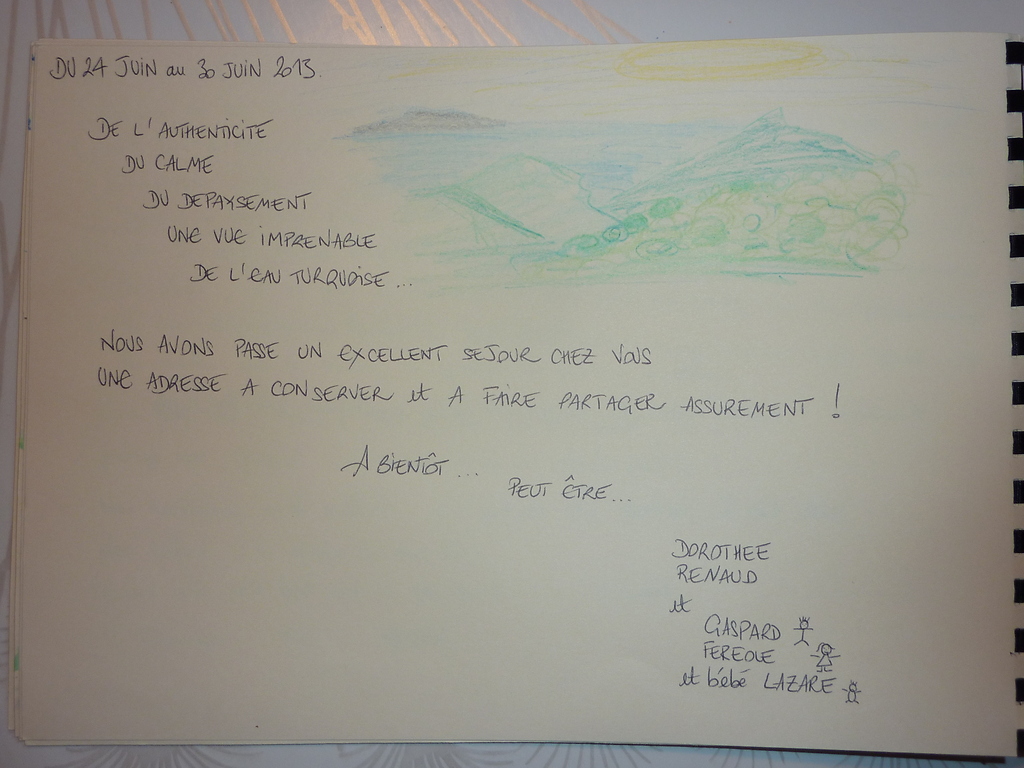 DU 24 JUIN au 30 JUIN 2013.
DE L'AUTHENTICITE
DU CALME
DU DEPAYSEMENT
UNE VUE IMPRENABLE
DE L'EAU TURQUOISE...
NOUS AVONS PASSE UN EXCELLENT SEJOUR CHEZ VOUS
UNE ADRESSE A CONSERVER et A FAIRE PARTAGER ASSUREMENT !
A BIENTÔT...
PEUT ÊTRE...
DOROTHEE
RENAUD
et
GASPARD
FEREOLE
et bébé LAZARE